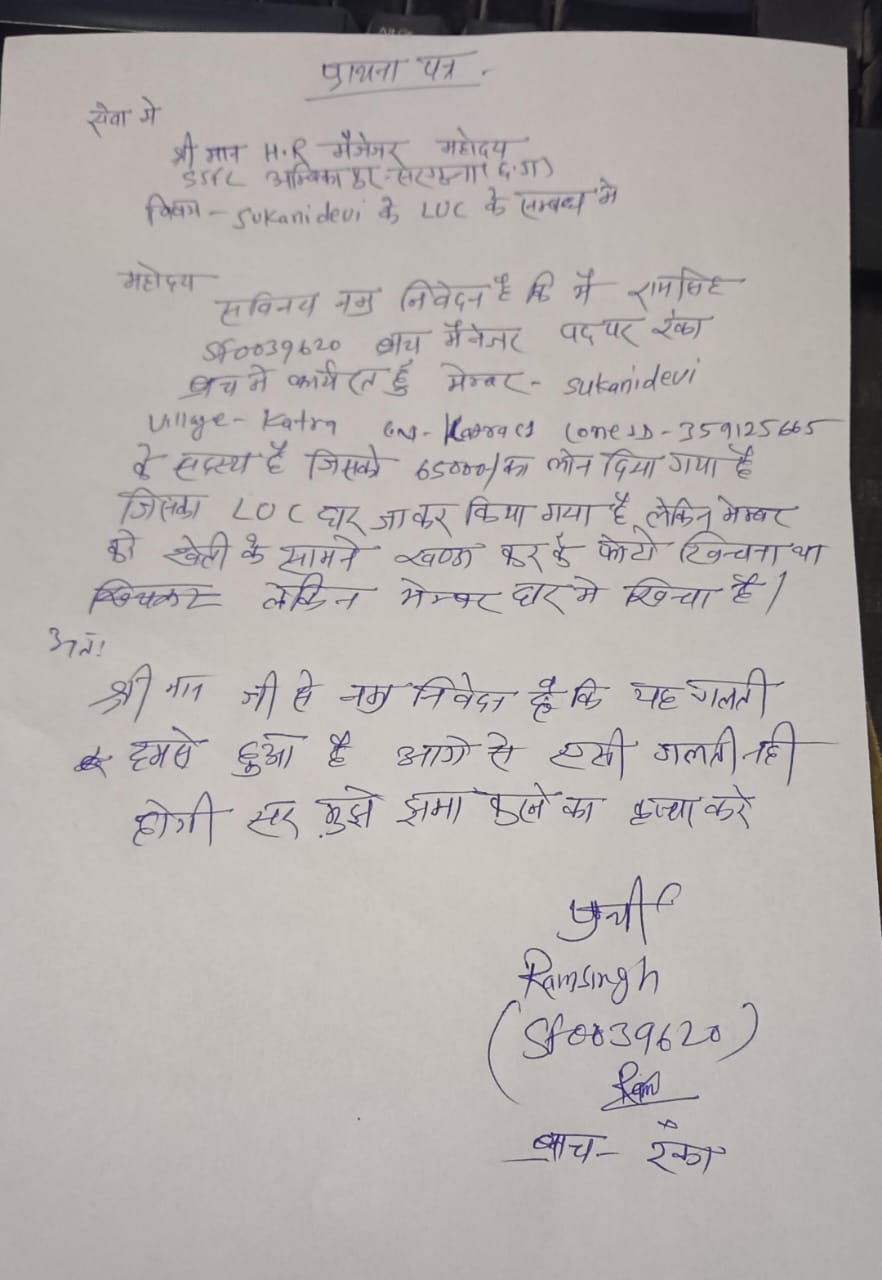 प्राथना पत्र .
सेवा मे
श्री मान H.R मैनेजर महोदय
अम्बिकापुर - सरगुजा (छ.ग)
विषय - Sukanidevi के LUC के सम्बध मे
महोदय
सविनय नम्र निवेदन है कि मै रामसिंह
SF0039620 ब्राच मैनेजर पद पर रंका
ब्राच मे कार्यरत हुँ मेम्बर - Sukanidevi
Village - Katra ID - 359125665
के सदस्य है जिसको 65000/ का लोन दिया गया है
जिसका LUC घर जाकर किया गया है, लेकिन मेम्बर
को खेती के सामने खण्डा कर के फोटो खिन्चना था
लेकिन मेम्बर घर मे खिचा है।
अतः
श्री मान जी से नम्र निवेदन है कि यह गलती
हमसे हुआ है आगे से एसी गलती नही
होगी सर मुझे क्षमा करने का कृप्या करे
प्रार्थी
Ramsingh
(SF0039620)
Ram
ब्राच - रंका